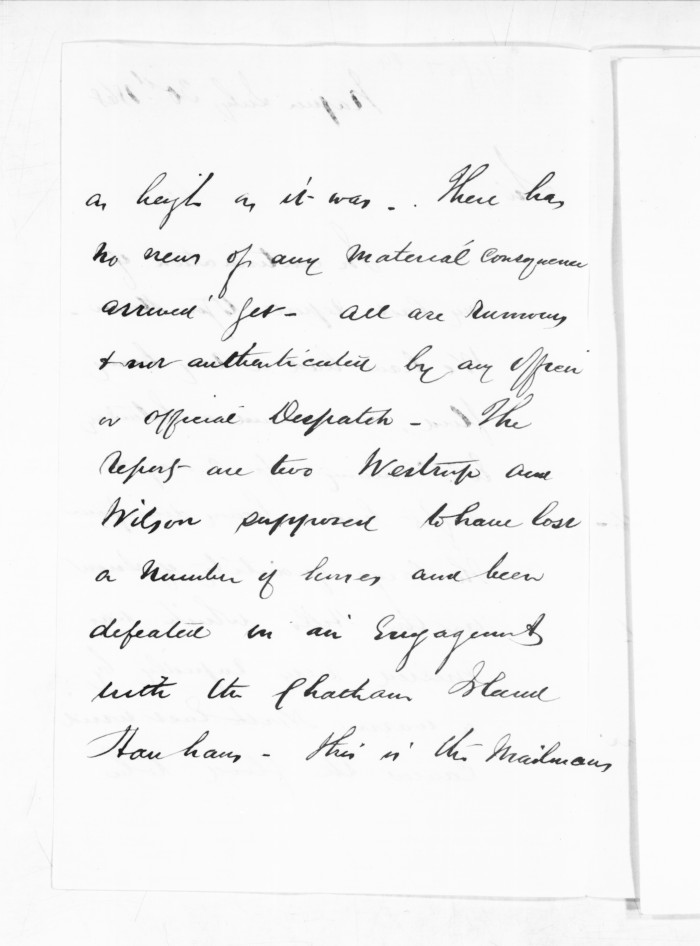 as heigh as it was - . There has
no news of any material consequence
arrived yet - all are rumours
& not authenticated by any officer
or official Despatch - The
report are two Westrup and
Wilson supposed to have lost
a number of horses and been
defeated in an Engagement
with the Chatham Island
Hauhaus - this is the Mailmans